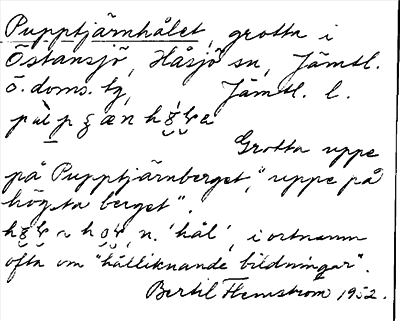 Pupptjärnhålet, grotta i
Östansjö, Håsjö sn, Jämtl.
ö. doms. tg, Jämtl. l.
Grotta uppe
på "Pupptjärnberget," uppe på
högsta berget".
n. 'hål', i ortnamn
ofta om "hålliknande bildningar".
Bertil Flemström 1952.